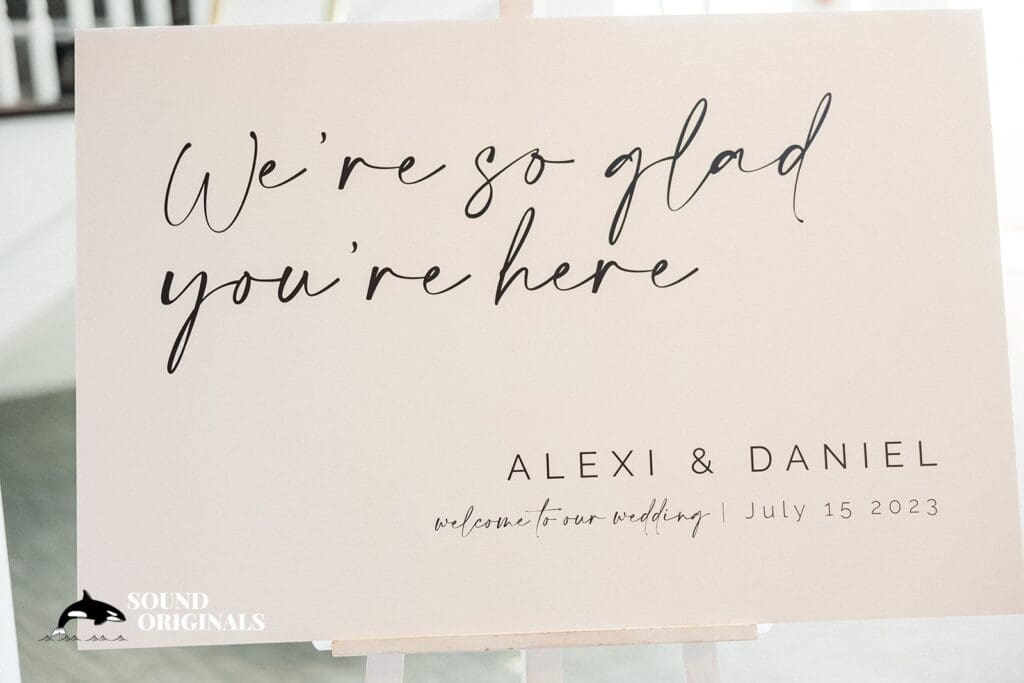 We're so glad
you're here
ALEXI & DANIEL
welcome to our wedding | July 15 2023
SOUND
ORIGINALS